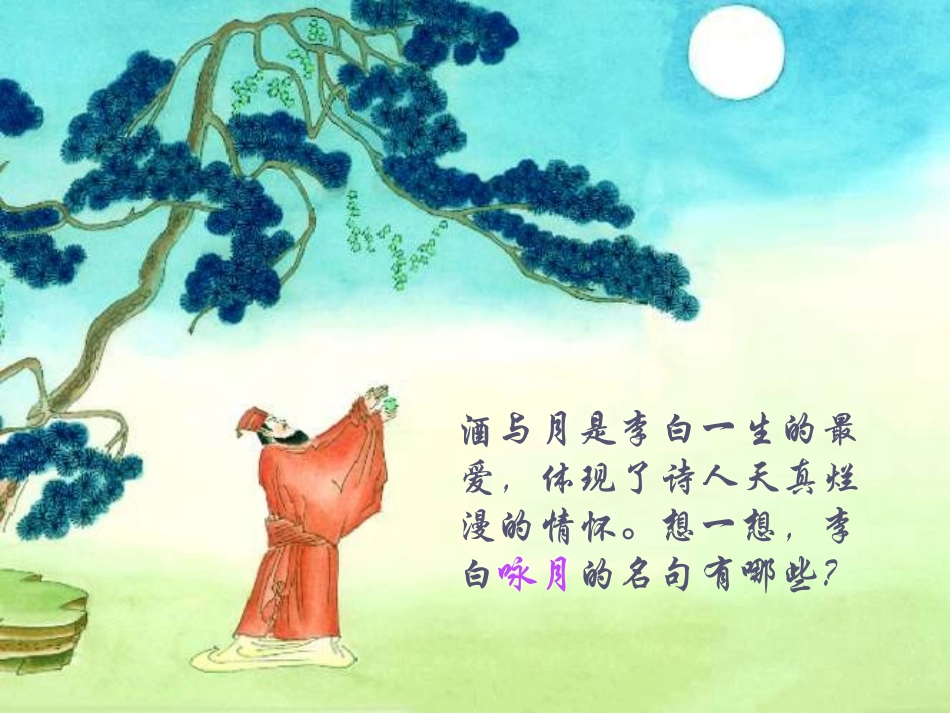 酒与月是李白一生的最
爱，体现了诗人天真烂
漫的情怀。想一想，李
白咏月的名句有哪些？